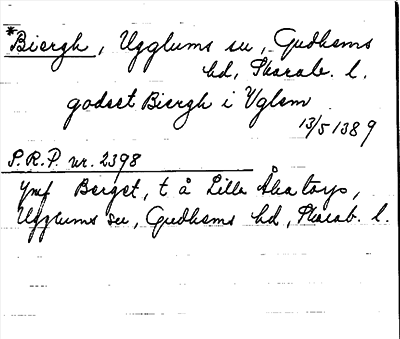 *Biergh, Ugglums su, Gudhems
hd, Skarab. l.
godset Biergh i Uglem
13/5 1389
S.R.P. nr. 2398
Jmf Berget, t å Lilla Åkatorp,
Ugglums su, Gudhems hd, Skarab. l.